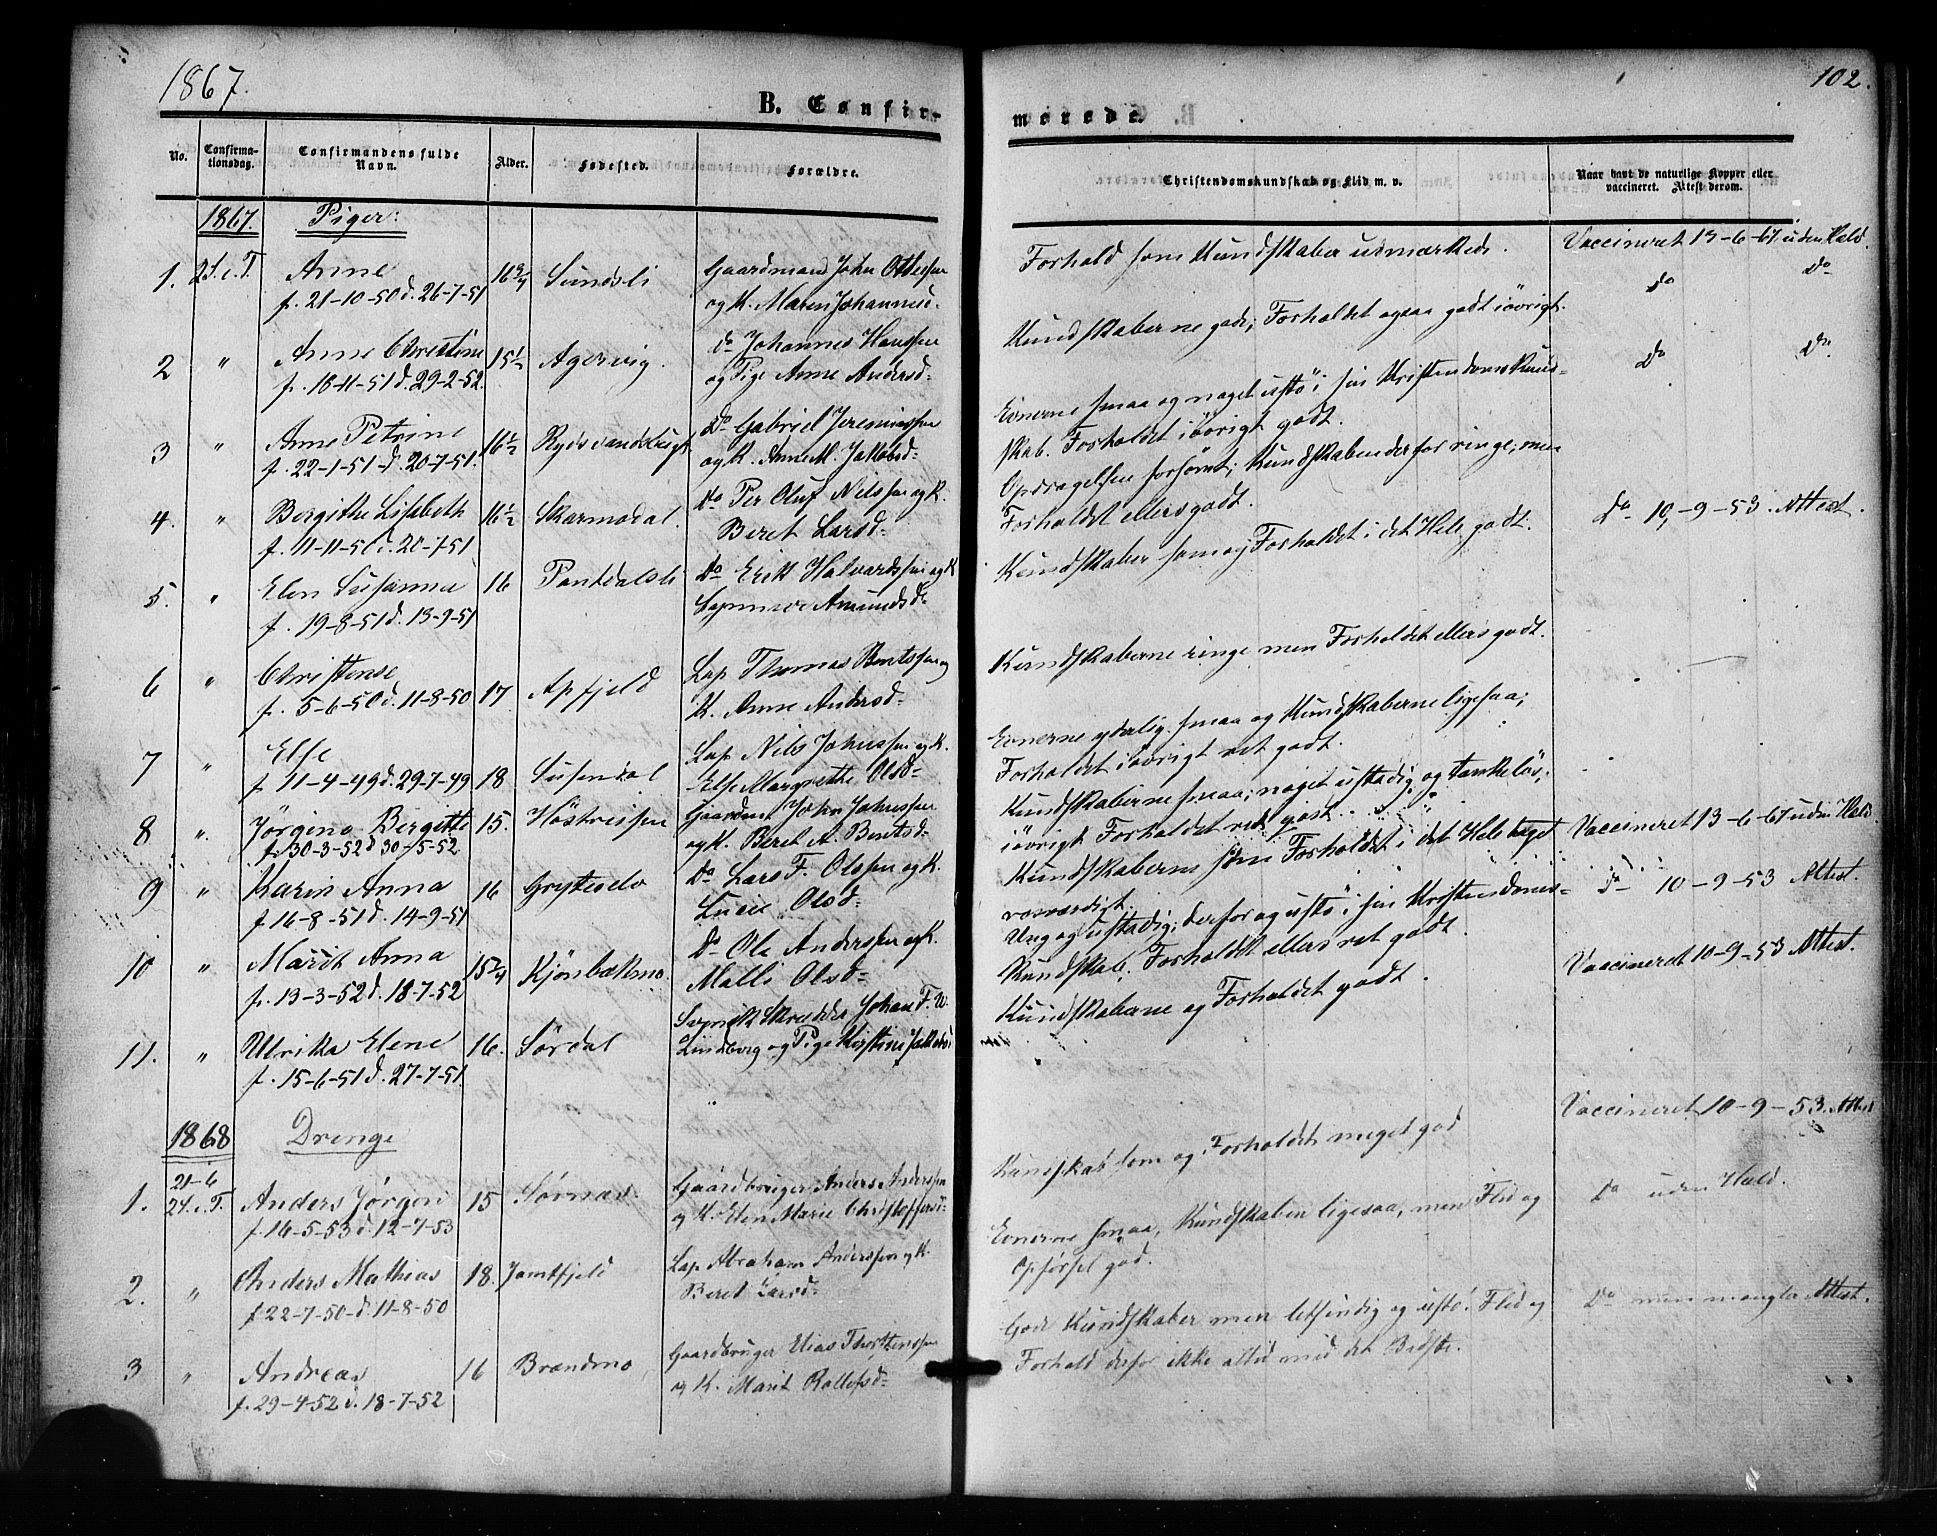 1867.
102.
B. Confir-
merede.
No.
Confirma-
tionsdag.
Confirmandens fulde
Navn.
Alder.
Fødested.
Forældre.
Christendomskundskab og Flid m. v.
Naar havt de naturlige Kopper eller
vaccineret. Attest derom.
1867. Piger:
1. 2 S. e. T. Anne 16 3/4 Sundsli Gaardmand John Ottessen
f. 21-10-50 d. 26-7-51 og K. Maren Johannesd.
Forhold som Kundskaber udmærkede. Vaccineret 13-6-67 uden Hald.
2 " Anne Christine 15 1/2 Agervig. Do Johannes Hanssen
f. 10-11-51 d. 29-2-52. og Pige Anne Andersd=
Kundskaberne gode; Forholdet ogsaa godt iøvrigt. Do Do
3 " Anne Petrine 16 1/2 Do Gabriel Jeremiassen
f. 22-1-51-d. 20-7-51. og K. Anne M. Jakobsd=
Evnerne smaa og noget ustø i sin Kristendomskund-
skab. Forholdet iøvrigt godt. Do Do
4. " Bergithe Lisbeth 16 1/2 Skarmodal. Do Per Oluf Nilssen og K.
f. 11-11-50 d. 20-7-51 Beret Larsd=
Opdragelsen forsømt; Kundskaben derfor ringe, men
Forholdet ellers godt.
5. " Elen Susanna 16 Pantdalsli Do Erik Halvardssen og K
f. 19-8-51 d. 13-9-51 Amundsd=
Kundskaber som og Forholdet i det Hele godt. Do 10-9-53. Attest.
6 " Christense 17. Apfjeld Lap Thomas Bentssen og
f. 5-6-50 d. 11-8-50 K. Anne Andersd=
Kundskaberne ringe men Forholdet ellers godt.
7 " Else 18 Susendal Lap Nils Johnssen og K.
f 11-4-49 d. 29-7-49 Else Margrethe Olsd=
Evnerne yderlig smaa og Kundskaberne ligesaa;
Forholdet iøvrigt ret godt.
8 ". Jørgine Bergitte 15. Gaardm John Johnssen
f. 30-3-52 d 30-5-52 og K. Beret A. Bentsd=
Kundskaberne smaa; noget ustadig og tankeløs;
iøvrigt Forholdet vel gjort. Vaccineret 13-6-67 uden Hald.
9 " Karin Anna 16 Gryteselv Do Lars F. Olssen og K.
f 16-8-51 d. 14-9-51 Olsd=
Kundskaberne som Forholdet i det Hele taget
rosværdigt. Do 10-9-53 Attest.
10 " Marit Anna 15 1/4 Kjønbækmo. Do Ole Anderssen og K.
f. 13-3-52 d. 18-7-52 Malli Olsd=
Ung og ustadig; derfor og ustø i sin Kristendoms-
Kundskab. Forholdet ellers ret godt. Vaccineret 10-9-53 Attest.
11. " Ulrika Elene 16. Sørdal Svensk Skrædder Johan F. W.
f. 15-6-51 d. 27-7-51. Lindberg og Pige Kirstine
Kundskaberne og Forholdet godt.
1868 Drenge
21-6
1. 2 S. e. T. Anders Jørgen 15 Sørnæs. Gaardbruger Anders Anderssen
f. 16-5-53 d. 12-7-53 og K. Elen Marie Christoffersd=
Kundskab som og Forholdet meget god Vaccineret 10-9-53. Attest
2. " Anders Mathias 18. Jamtfjeld Lap Abraham Anderssen og K.
f 22-7-50-d. 11-8-50 Beret Larsd=
Evnerne smaa, Kundskaben ligesaa, men Flid og
Opførsel god. Do uden Hald.
3 " Andreas 16 Brændmo Gaardbruger Elias Thorstenssen
f. 29-4-52 d. 18-7-52 og K. Marit Rollefsd=
God Kundskaber men letsindig og ustø. Flid og
Forhold derfor ikke altid med det Bedste. Do men mangler Attest.